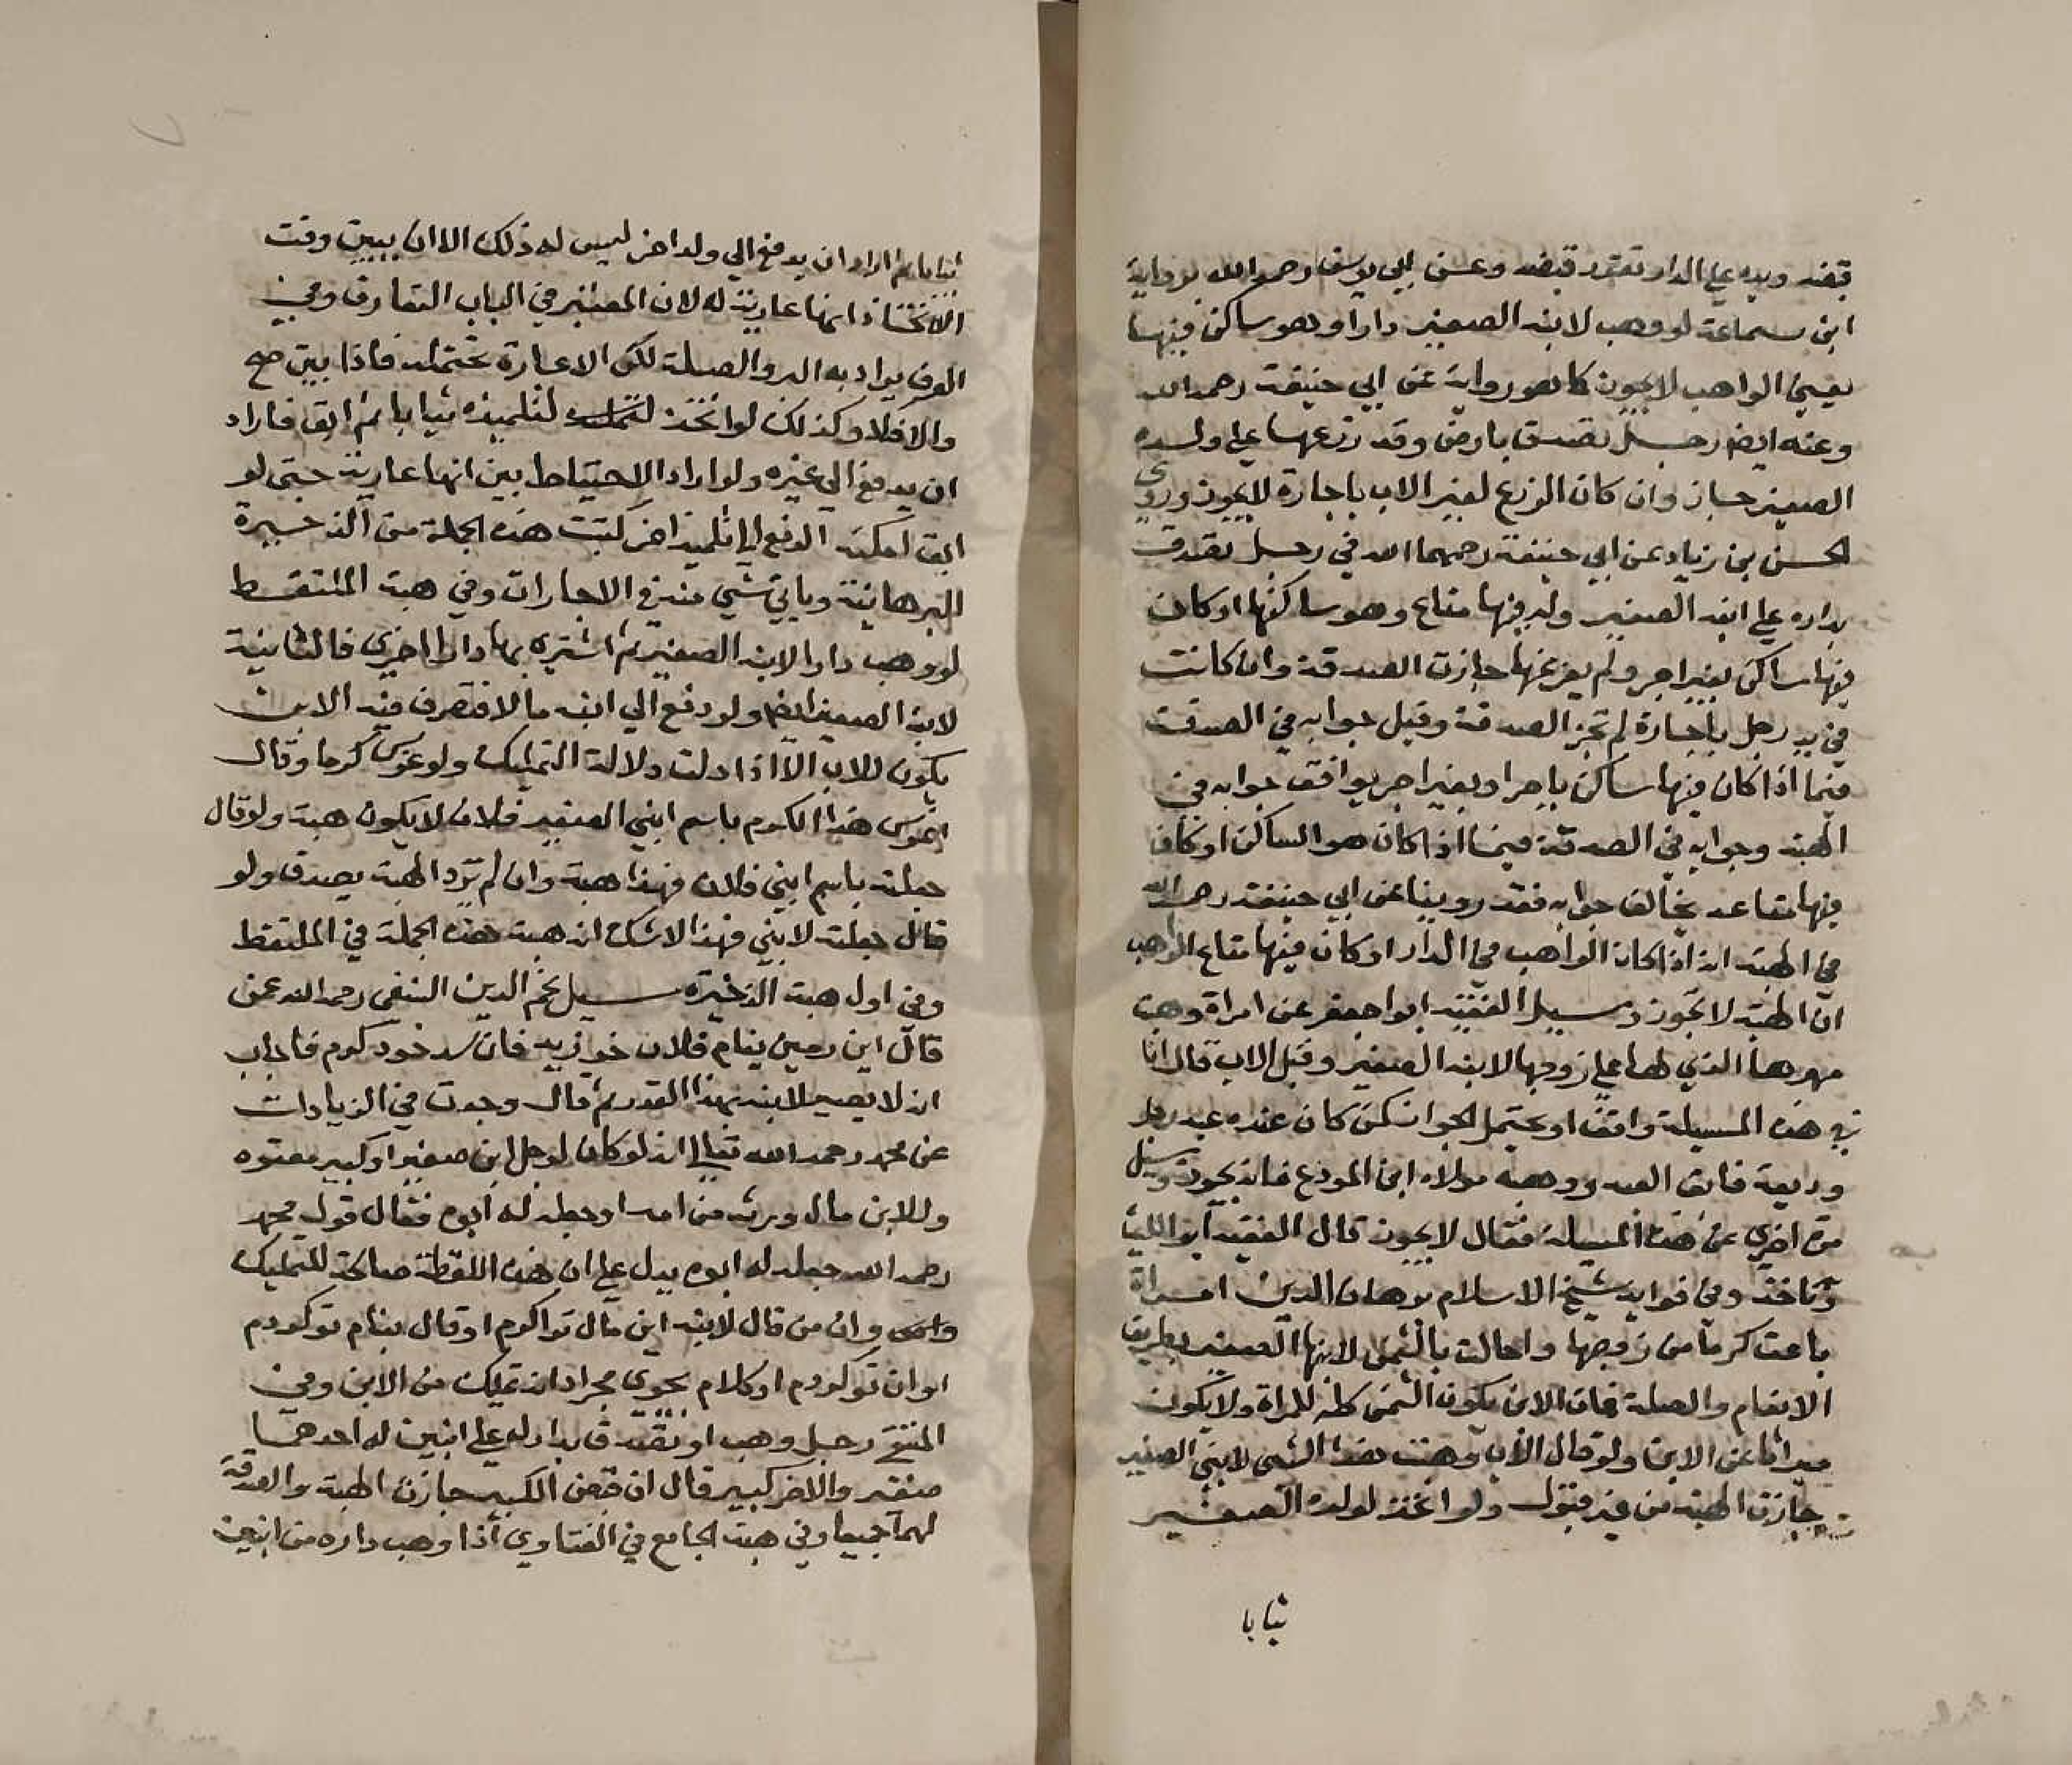 قبضه ويده علي الدار تقرر قبضه وعن ابي يوسف رحمه الله برواية
ابن سماعة لو وهب لابنه الصغير دارا وهو ساكن فيها
يعني الواهب لا يجوز كما هو رواية عن ابي حنيفة رحمه الله
وعنه ايضا رجل تصدق بارض وقد زرعها علي ولده
الصغير جاز وان كان الزرع لغير الاب باجارة لا يجوز وروي
الحسن بن زياد عن ابي حنيفة رحمهما الله في رجل تصدق
بداره علي ابنه الصغير وله فيها متاع وهو ساكنها او كان
فيها ساكن بغير اجر ولم يفرغها جازت الصدقة وان كانت
في يد رجل باجارة لم تجز الصدقة وقيل جوابه في الصدقة
فيما اذا كان فيها ساكن باجر او بغير اجر يوافق جوابه في
الهبة وجوابه في الصدقة فيما اذا كان هو الساكن او كان
فيها متاعه يخالف جوابه فقد روينا عن ابي حنيفة رحمه الله
في الهبة انه اذا كان الواهب في الدار او كان فيها متاع الواهب
ان الهبة لا تجوز وسيل الفقيه ابو جعفر عن امراة وهبت
مهرها الذي لها علي زوجها لابنه الصغير وقبل الاب قال انا
في هذه المسيلة واقف او يحتمل الجواز كمن كان عنده عبد رجل
وديعة فابق العبد ووهبه مولاه ابن المودع فانه يجوز وسيل
مرة اخري عن هذه المسيلة فقال لا يجوز قال الفقيه ابو الليث
وبه ناخذ وفي فوايد شيخ الاسلام برهان الدين امراة
باعت كرما من زوجها واحالت بالثمن لابنها الصغير بطريق
الانعام والصلة فان الابن يكون الثمن كله للمراة ولا يكون
ميراثا عن الابن ولو قال الاب وهبت هذا الشي لابني الصغير
جازت الهبة من غير قبول ولو اتخذ لولده الصغير
ثيابا
ثيابا ثم اراد ان يدفع الي ولد اخر ليس له ذلك الا ان يبين وقت
الاتخاذ انها عارية له لان المعتبر في الباب التعارف وفي
العرف يراد به البر والصلة لكن الاعارة تحتمله فاذا بين صح
والا فلا وكذلك لو اتخذ لتلميذه ثيابا ثم ابق فاراد
ان يدفع الي غيره ولو اراد الاحتياط بين انها عارية حتي لو
ابق امكنه الدفع الي تلميذ اخر كتبت هذه الجملة من الذخيرة
البرهانية وياتي شي منه في الاجارات وفي هبة الملتقط
لو وهب دارا لابنه الصغير ثم اشتري بها دارا اخري فالثانية
لابنه الصغير ايضا ولو دفع الي ابنه مالا فتصرف فيه الابن
يكون للاب الا اذا دلت دلالة التمليك ولو غرس كرما وقال
اغرس هذا الكرم باسم ابني الصغير فلان لا يكون هبة ولو قال
جعلته باسم ابني فلان فهذا هبة وان لم يرد الهبة يصدق ولو
قال جعلته لابني فهذا لا شك انه هبة هذه الجملة في الملتقط
وفي اول هبة الذخيرة سيل نجم الدين النسفي رحمه الله عمن
قال اين زمين بنام فلان خو فزند خود كردم فاجاب
انه لا يصير لابنه بهذا القدر ثم قال وجدت في الزيادات
عن محمد رحمه الله تعالي انه لو كان لرجل ابن صغير او كبير معتوه
وللابن مال ورثه من امه او جعله له ابوه فقال قول محمد
رحمه الله جعله له ابوه يدل علي ان هذه اللفظة صالحة للتمليك
وان من قال لابنه اين مال ترا كردم او قال بنام تو كردم
او ان تو كردم او كلام نحوي مجراه انه تمليك من الابن وفي
المنتقي رجل وهب او تصدق بدار له علي ابنين له احدهما
صغير والاخر كبير قال ان قبض الكبير جازت الهبة والصدقة
لهما جميعا وفي هبة الجامع في الفتاوي اذا وهب داره من ابنين